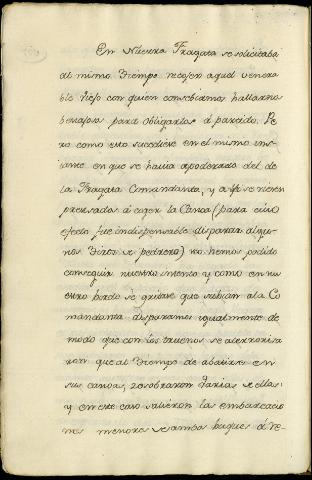 En Nuestra Fragata se solicitaba
al mismo tiempo recoger aquel venera
ble viejo con quien concebiamos hallarnos
para obligarlos á partido. Pe
ro como esto sucediese en el mismo ins-
tante en que se havia apoderado del de
la Fragata Comandanta, y a
á coger la Canoa (para cuio
efecto fue indispensable disparar algu-
nos tiros de pedrero) no hemos podido
conseguir nuestro intento y como en nu
estro bordo se gritase que subian a la Co
mandanta disparamos igualmente de
modo que con los truenos se atemorisa
ron que al tiempo de abatirse en
sus canoas, zozobraron varias de ellas:
y en este caso salieron las embarcacio
nes menores de ambos buques á re-